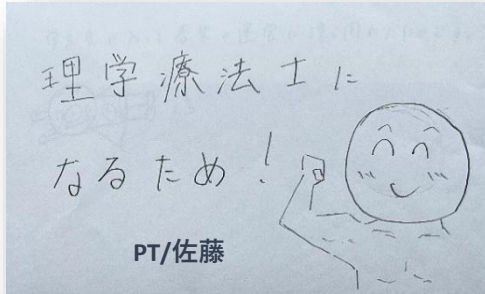 理学療法士に
なるため！
PT/佐藤